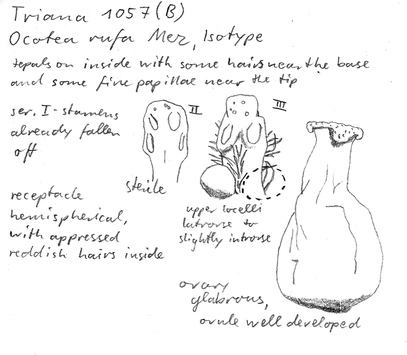 Triana 1057 (B)
Ocotea rufa Mez, Isotype
tepals on inside with some hairs near the base
and some fine papillae near the tip
ser. I-stamens
already fallen
off
II
III
sterile
receptacle
hemispherical,
with appressed
reddish hairs inside
upper locelli
latrorse to
slightly introrse
ovary
glabrous,
ovule well developed